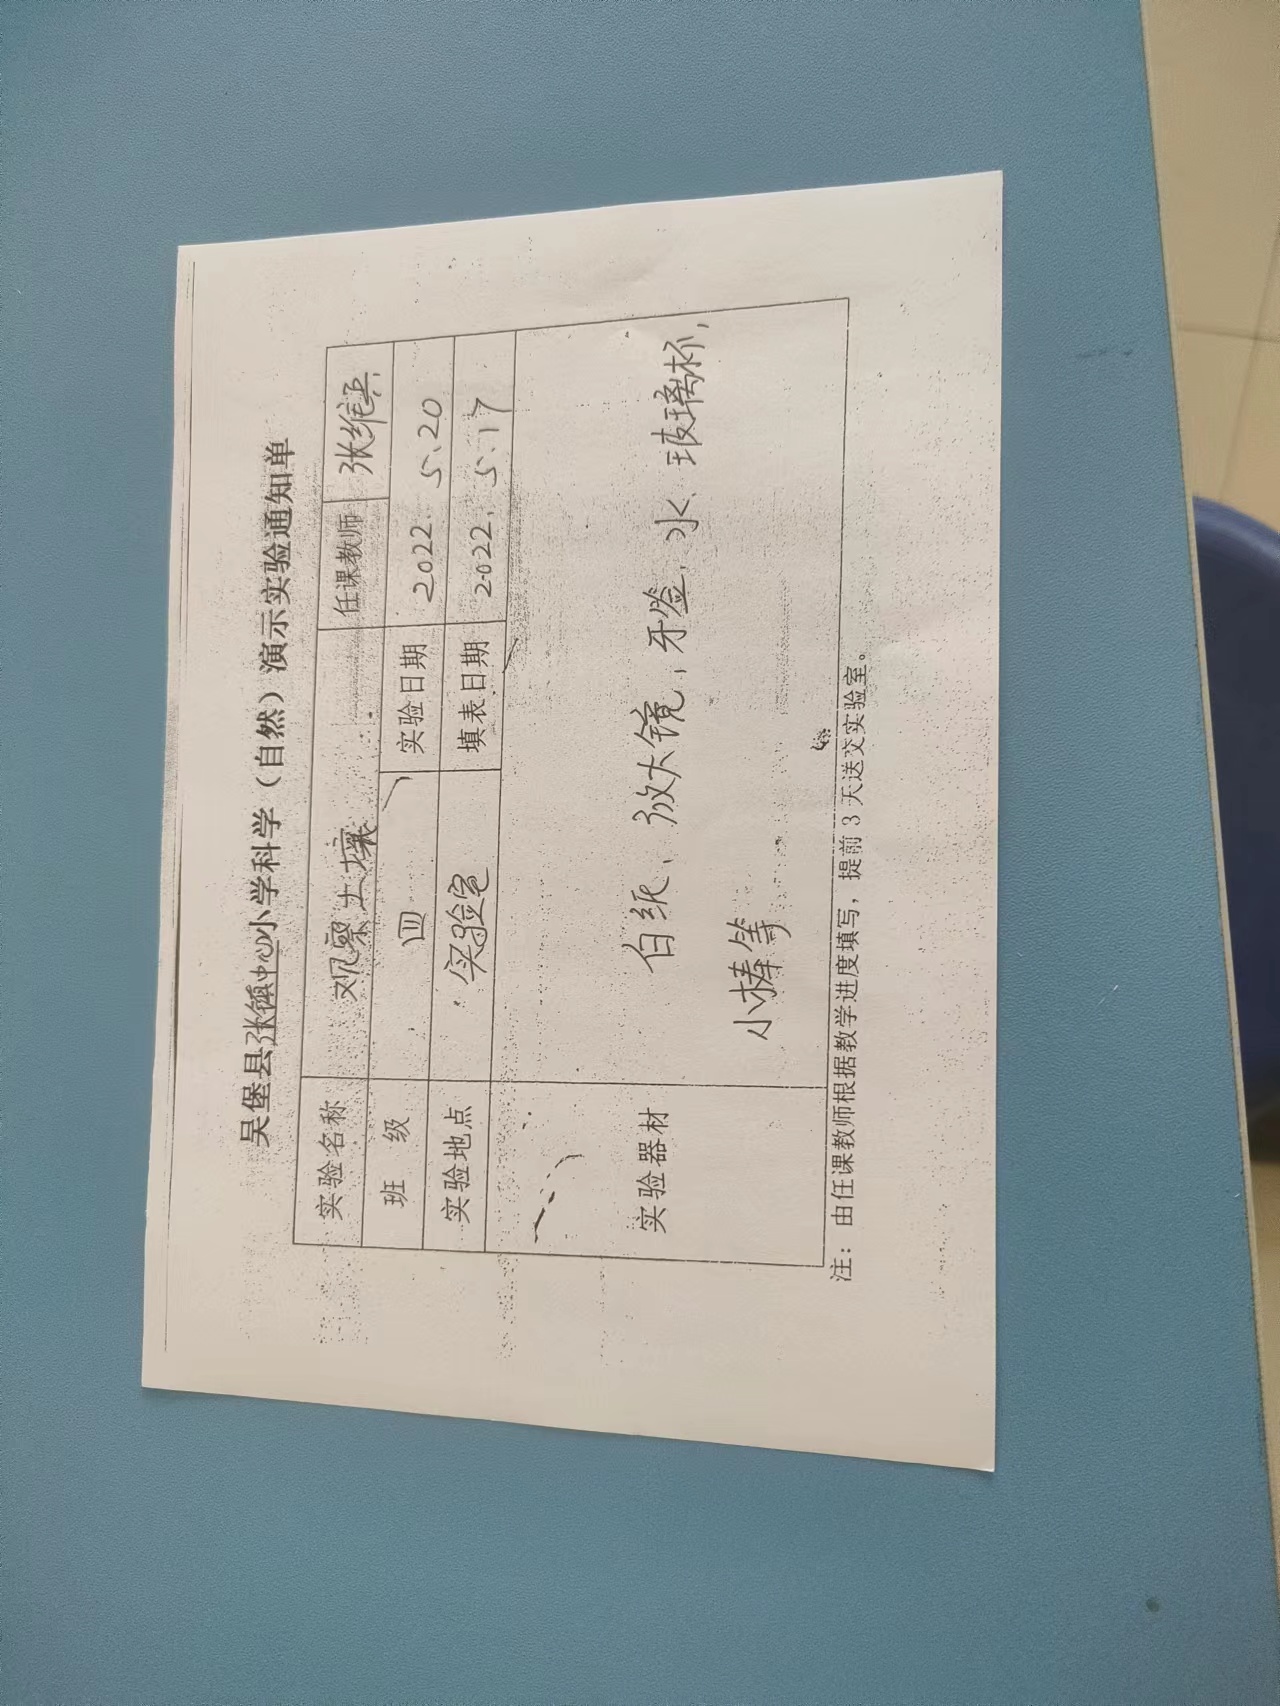 吴堡县张镇中心小学科学（自然）演示实验通知单
实验名称 观察土壤 任课教师 张维兵
班 级 四 实验日期 2022. 5、20
实验地点 实验室 填表日期 2022. 5. 17
实验器材 白纸、放大镜，牙签，水、玻璃杯，
小棒等
注：由任课教师根据教学进度填写，提前 3 天送交实验室。